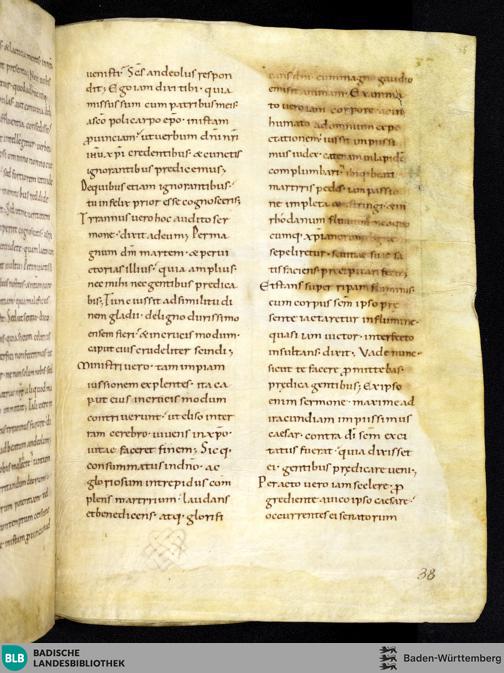 uenisti. Scs andeolus respon
dit; Ego iam dixi tibi. quia
missus sum cum patribus meis
a sco policarpo epo. in istam
prouinciam. ut uerbum dni nri
ihu xpi credentibus. & cunctis
ignorantibus predicemus;
De quibus etiam ignorantibus.
tu infelix prior esse cognosceris;
Tyrannus uero hoc audito ser
mone. dixit ad eum; Per ma
gnum dm martem. & per ui
ctorias illius. quia amplius
nec mihi nec gentibus predica
bis; Tunc iussit ad similitudi
nem gladii. de ligno durissimo
ensem fieri. & in crucis modum.
caput eius crudeliter scindi;
Ministri uero. tam impiam
iussionem explentes. ita ca
put eius in crucis modum
contriuerunt. ut eliso inter
ram cerebro. uiuens in xpo.
uitae faceret finem; Sicq.
consummatus in dno. ac
gloriosum intrepidus com
plens martyrium. laudans
et benedicens. atq. glorifi
cans dm. cum magno gaudio
emisit animam. Exanima
to uero iam corpore
humato ad omnium expe
ctationem iussit impiissi
mus iudex catenam in lapide
complumbari.
martyris pedes
ne impleta constringi. & in
rhodanum
cumq. xpianorum
sepeliretur.
tis faciens precipitari fecit;
Et stans super ripam fluminis.
cum corpus sem ipso pre
sente iactaretur in flumine.
quasi iam uictor. interfecto
insultans. dixit; Vade nunc.
sicut te facere promittebas.
predica gentibus; Ex ipso
enim sermone. maxime ad
iracundiam impiissimus
caesar. contra di sem exci
tatus fuerat. quia dixisset
ei. gentibus predicare ueni;
Peracto uero iam scelere. p
grediente auico ipso caesare.
occurrentes ei senatorum
38
BLB BADISCHE
LANDESBIBLIOTHEK
Baden-Württemberg